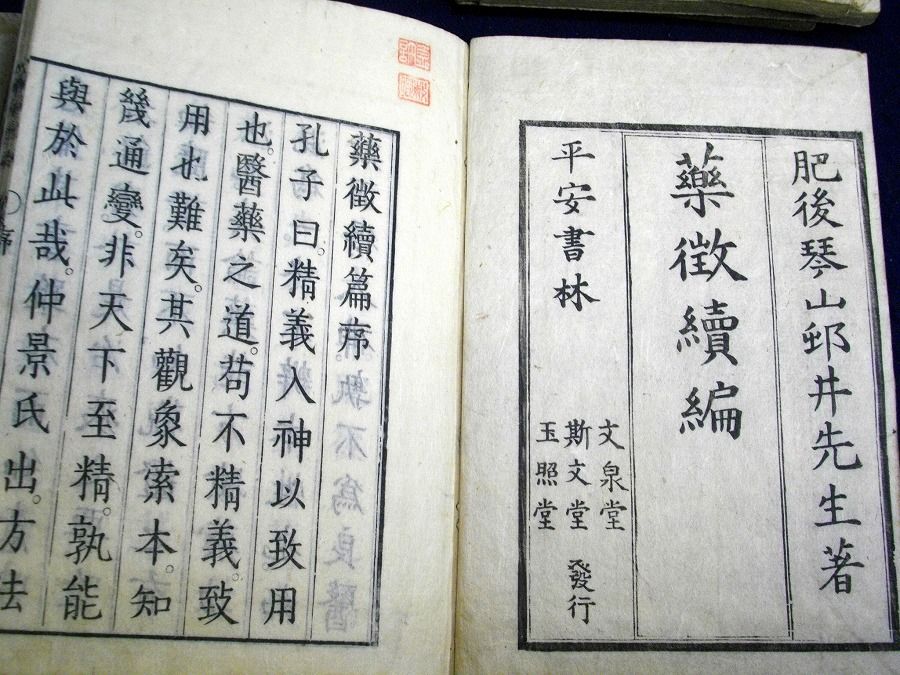 肥後琴山邨井先生著
藥徴續編
平安書林
文泉堂
斯文堂
玉照堂
發行
藥徴續篇序。
孔子曰。精義入神以致用
也。醫藥之道。苟不精義。致
用也難矣。其觀象索本。知
幾通變。非天下至精。孰能
與於此哉。仲景氏出。方法
序